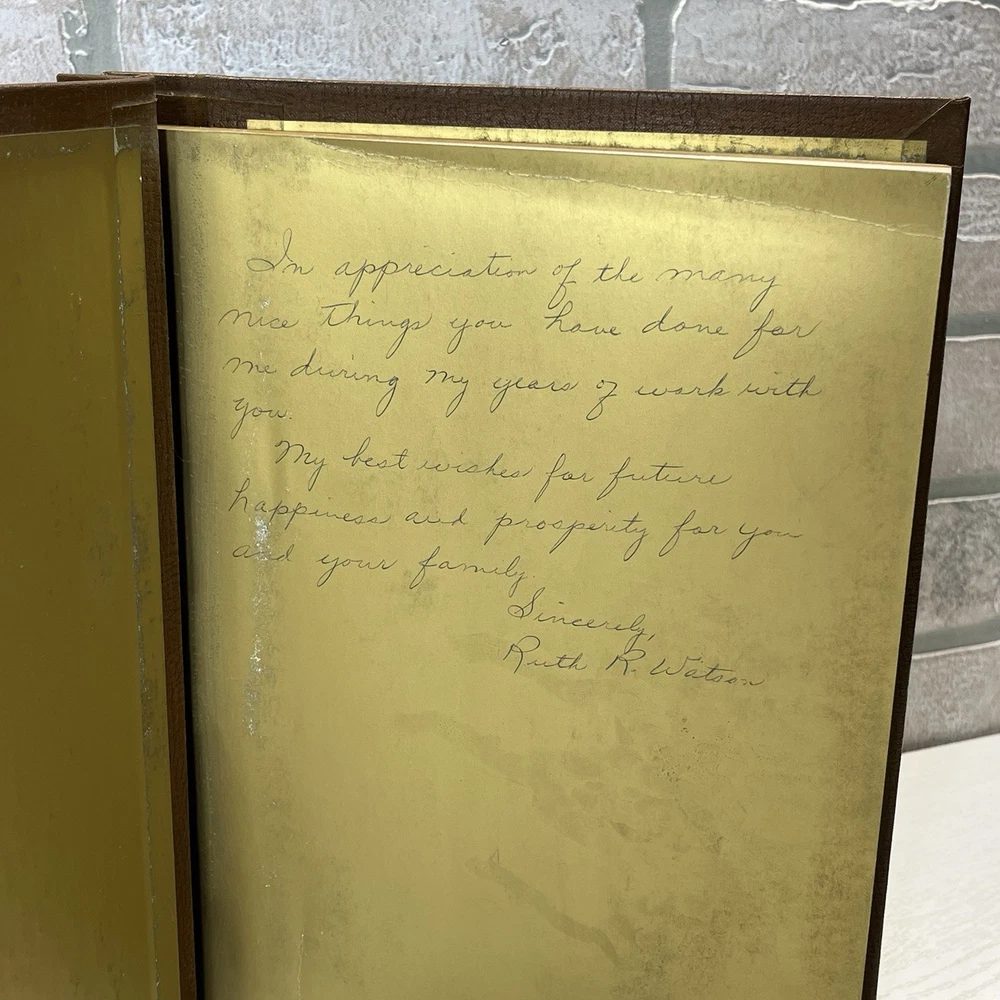 In appreciation of the many
nice things you have done for
me during my years of work with
you.
My best wishes for future
happiness and prosperity for you
and your family.
Sincerely,
Ruth R. Watson